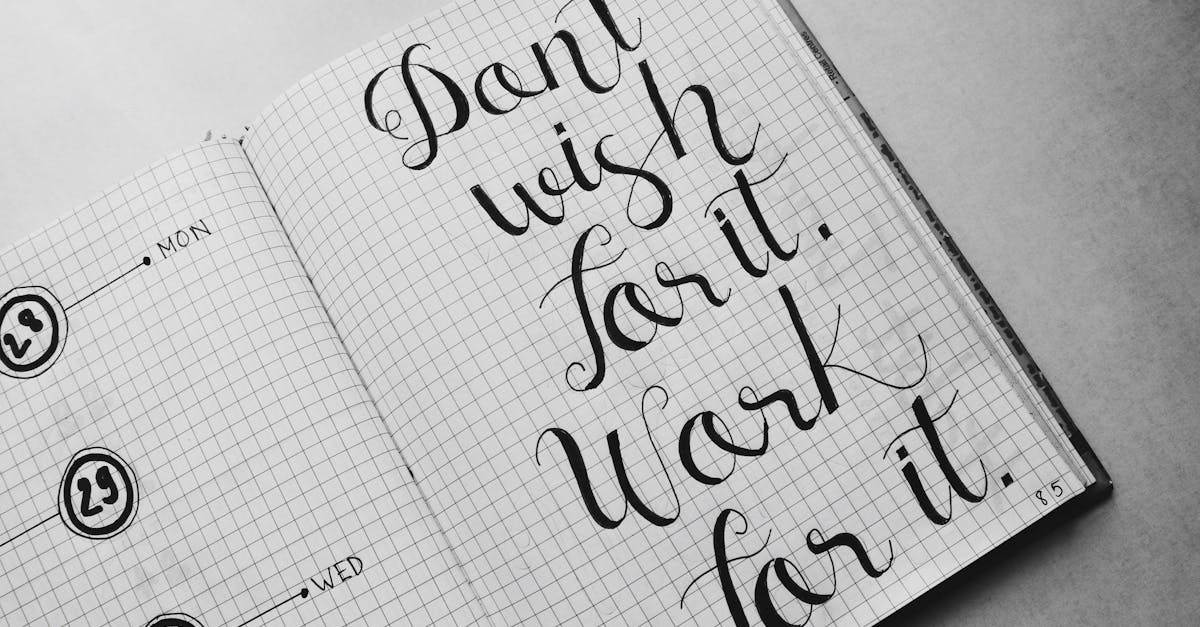 MON
28
29
WED
Dont
wish
for it.
Work
for it.
85